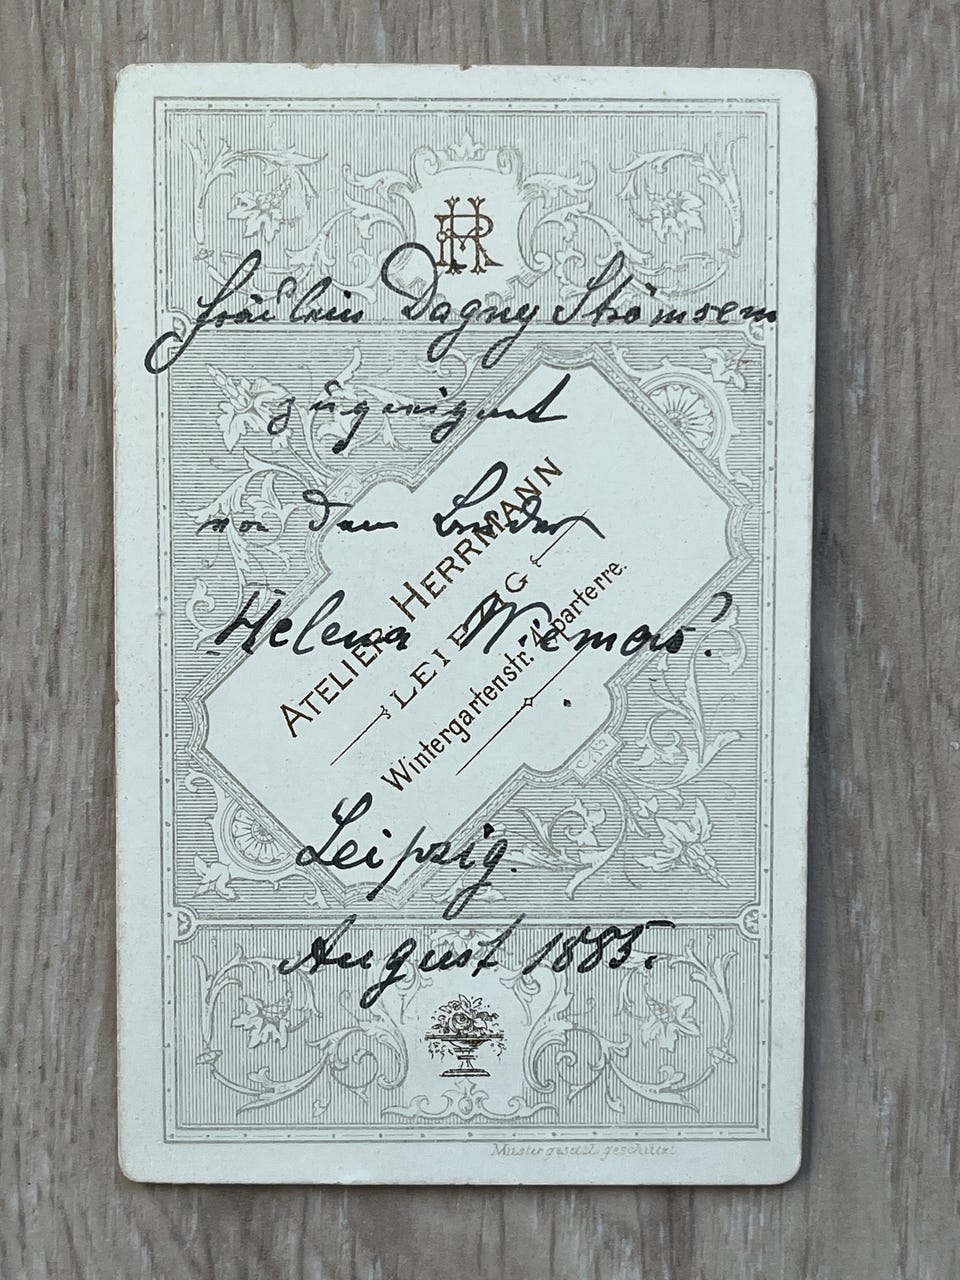 HR
Fräulein Dagny
zugeeignet
von dem
ATELIER HERRMANN
LEIPZIG
Wintergartenstr. 4. parterre.
Helena
Leipzig.
August 1885.
Muster gesetzl. geschützt